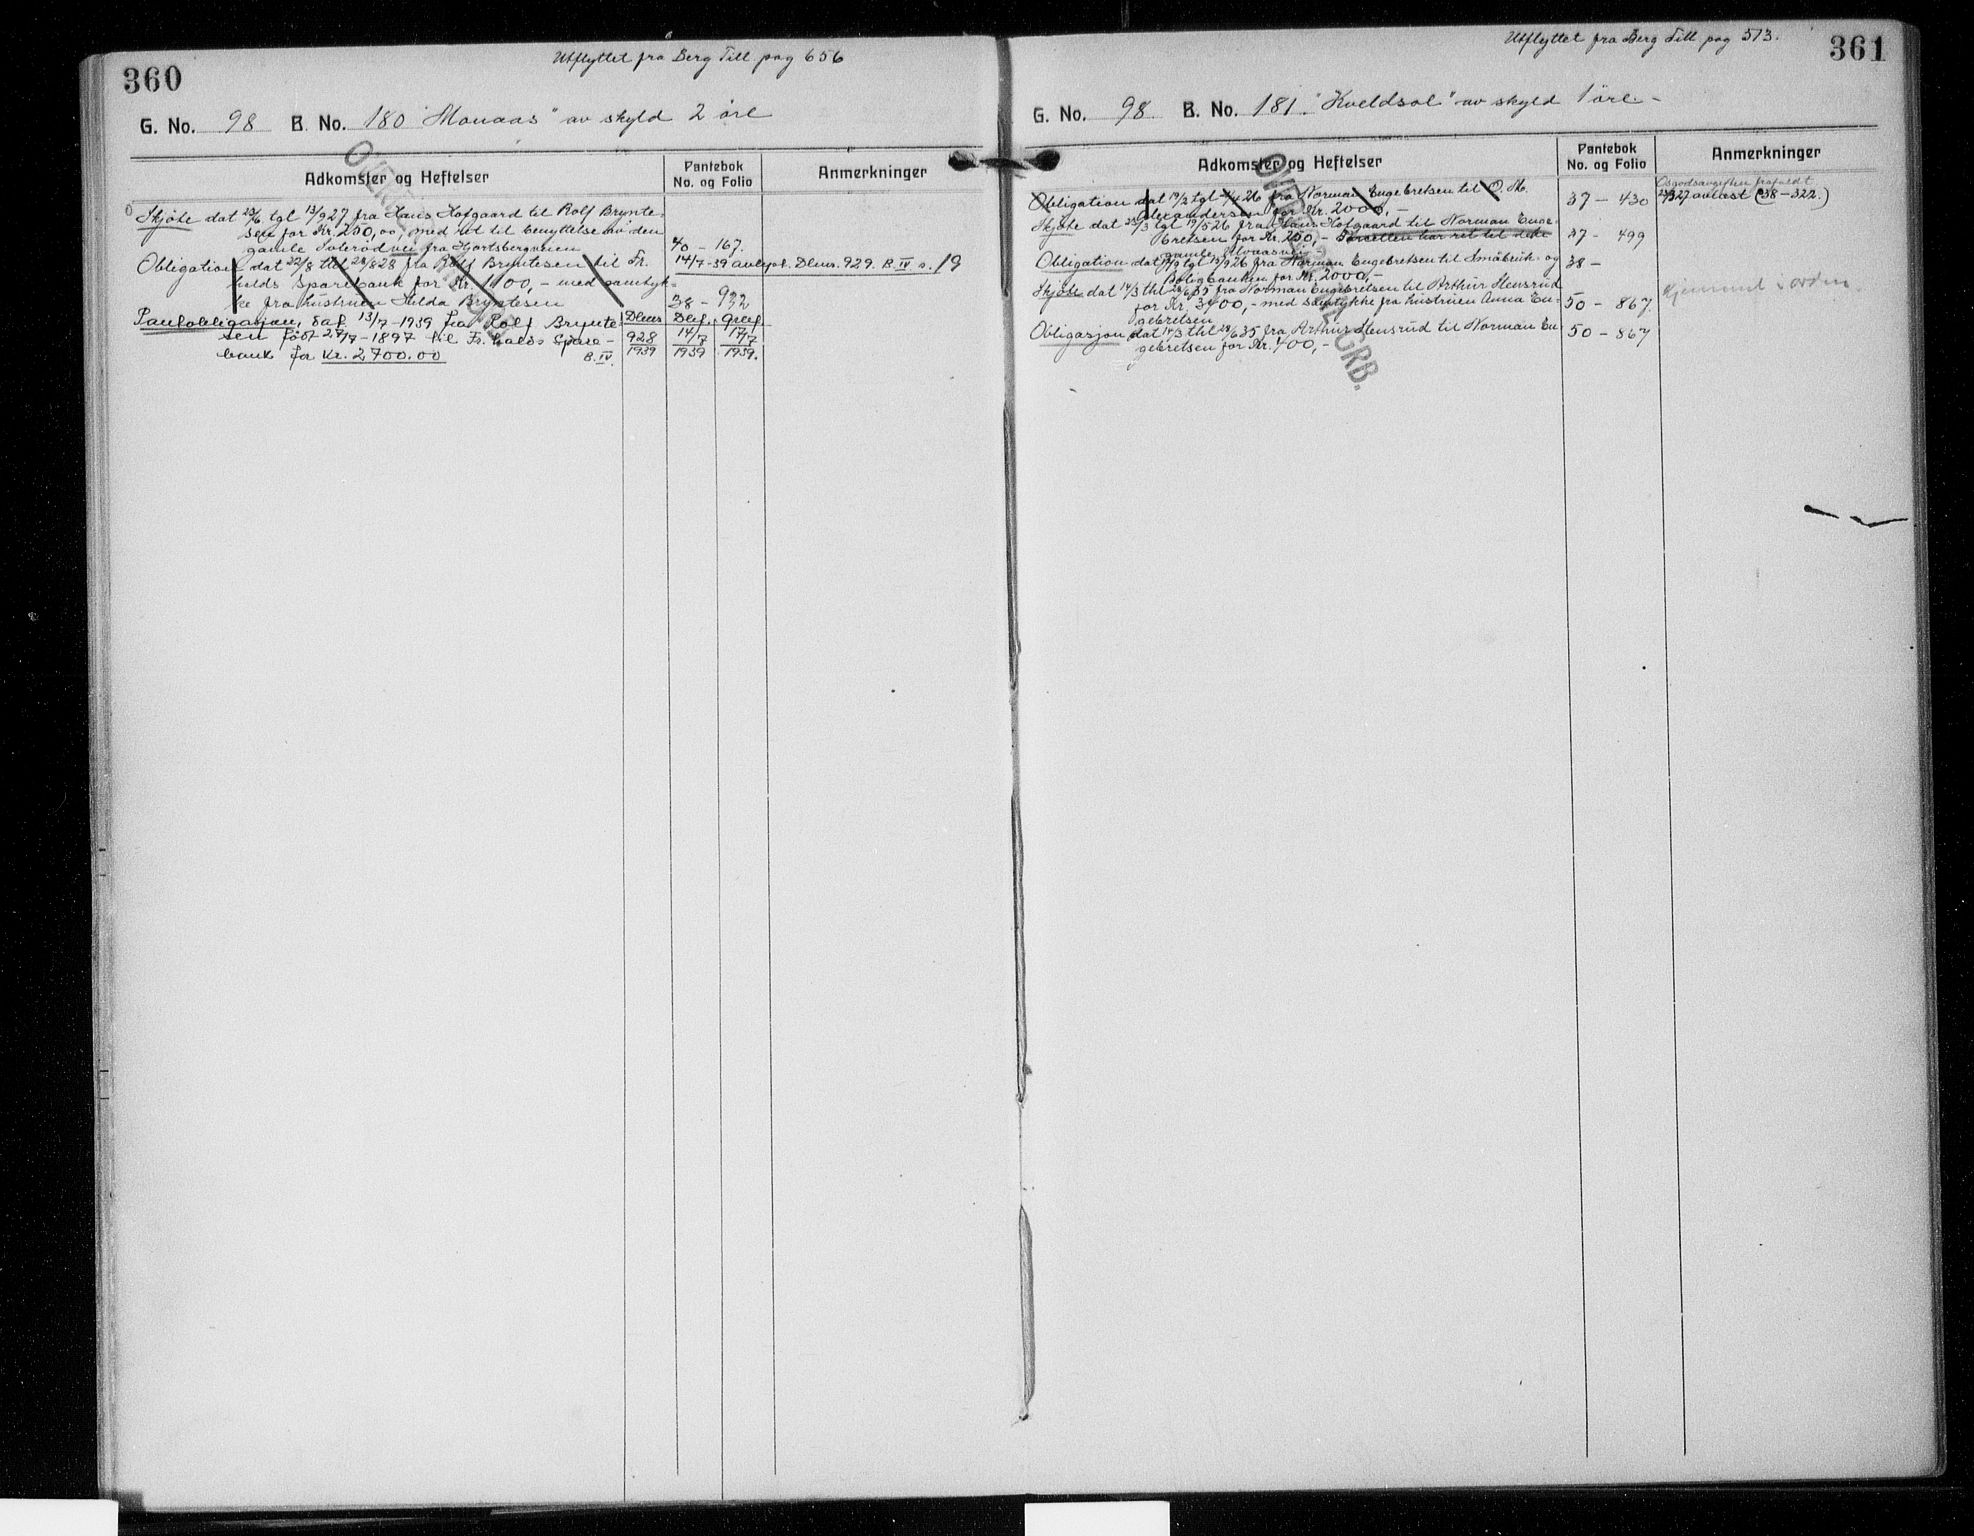 360
Utflyttet fra Berg Till pag 656
G. No. 98 B. No. 180 "Monaas" av skyld 2 øre
Adkomster og Heftelser
Pantebok
No. og Folio
Anmerkninger
Skjøte dat 23/6 tgl 13/9 27 fra Hans Hofgaard til Rolf Brynte-
sen for Kr. 200,00, med ret til benyttelse av den
gamle vei fra Hjortsbergveien
40 - 167.
Obligation dat 22/8 thl 28/8 28 fra Rolf Bryntesen til Fr.
halds Sparebank for Kr. 1100,- med samtyk-
ke fra hustruen Hilda Bryntesen
38 - 932
14/7-39 avlyst. Dbnr. 929. B. IV s. 19
Pantobligasjon, dat 13/7-1939 fra Rolf Brynte-
sen født 27/7-1897 til Fr.halds Spare-
bank for Kr. 2700.00
B. IV.
Dbnr
928
1939
Dbf.
14/7
1939
17/7
1939.
361
Utflyttet fra Berg Till pag 513.
G. No. 98. B. No. 181. "Kveldsol" av skyld 1 øre -
Adkomster og Heftelser
Pantebok
No. og Folio
Anmerkninger
Obligation dat 14/3 tgl 26 fra Norman Engebretsen til O. M.
Alexandersen for Kr. 2000.-
37 - 430
avløst (38-322.)
Skjøte dat 25/3 tgl 19/5 26 fra Hans Hofgaard til Norman Enge-
bretsen for Kr. 200,- Parcellen har ret til
37 - 499
Obligation dat tgl 26 fra Norman Engebretsen til Småbruk- og
Boligbanken for Kr. 2000,-
38 -
Skjøte dat 14/3 thl 28/6 35 fra Norman Engebretsen til Arthur Hensrud
for Kr. 3400,- med samtykke fra hustruen Anna En-
gebretsen
50 - 867.
Obligasjon dat 14/3 thl 28/6 35 fra Arthur Hensrud til Norman En
gebretsen for Kr. 400,-
50 - 867